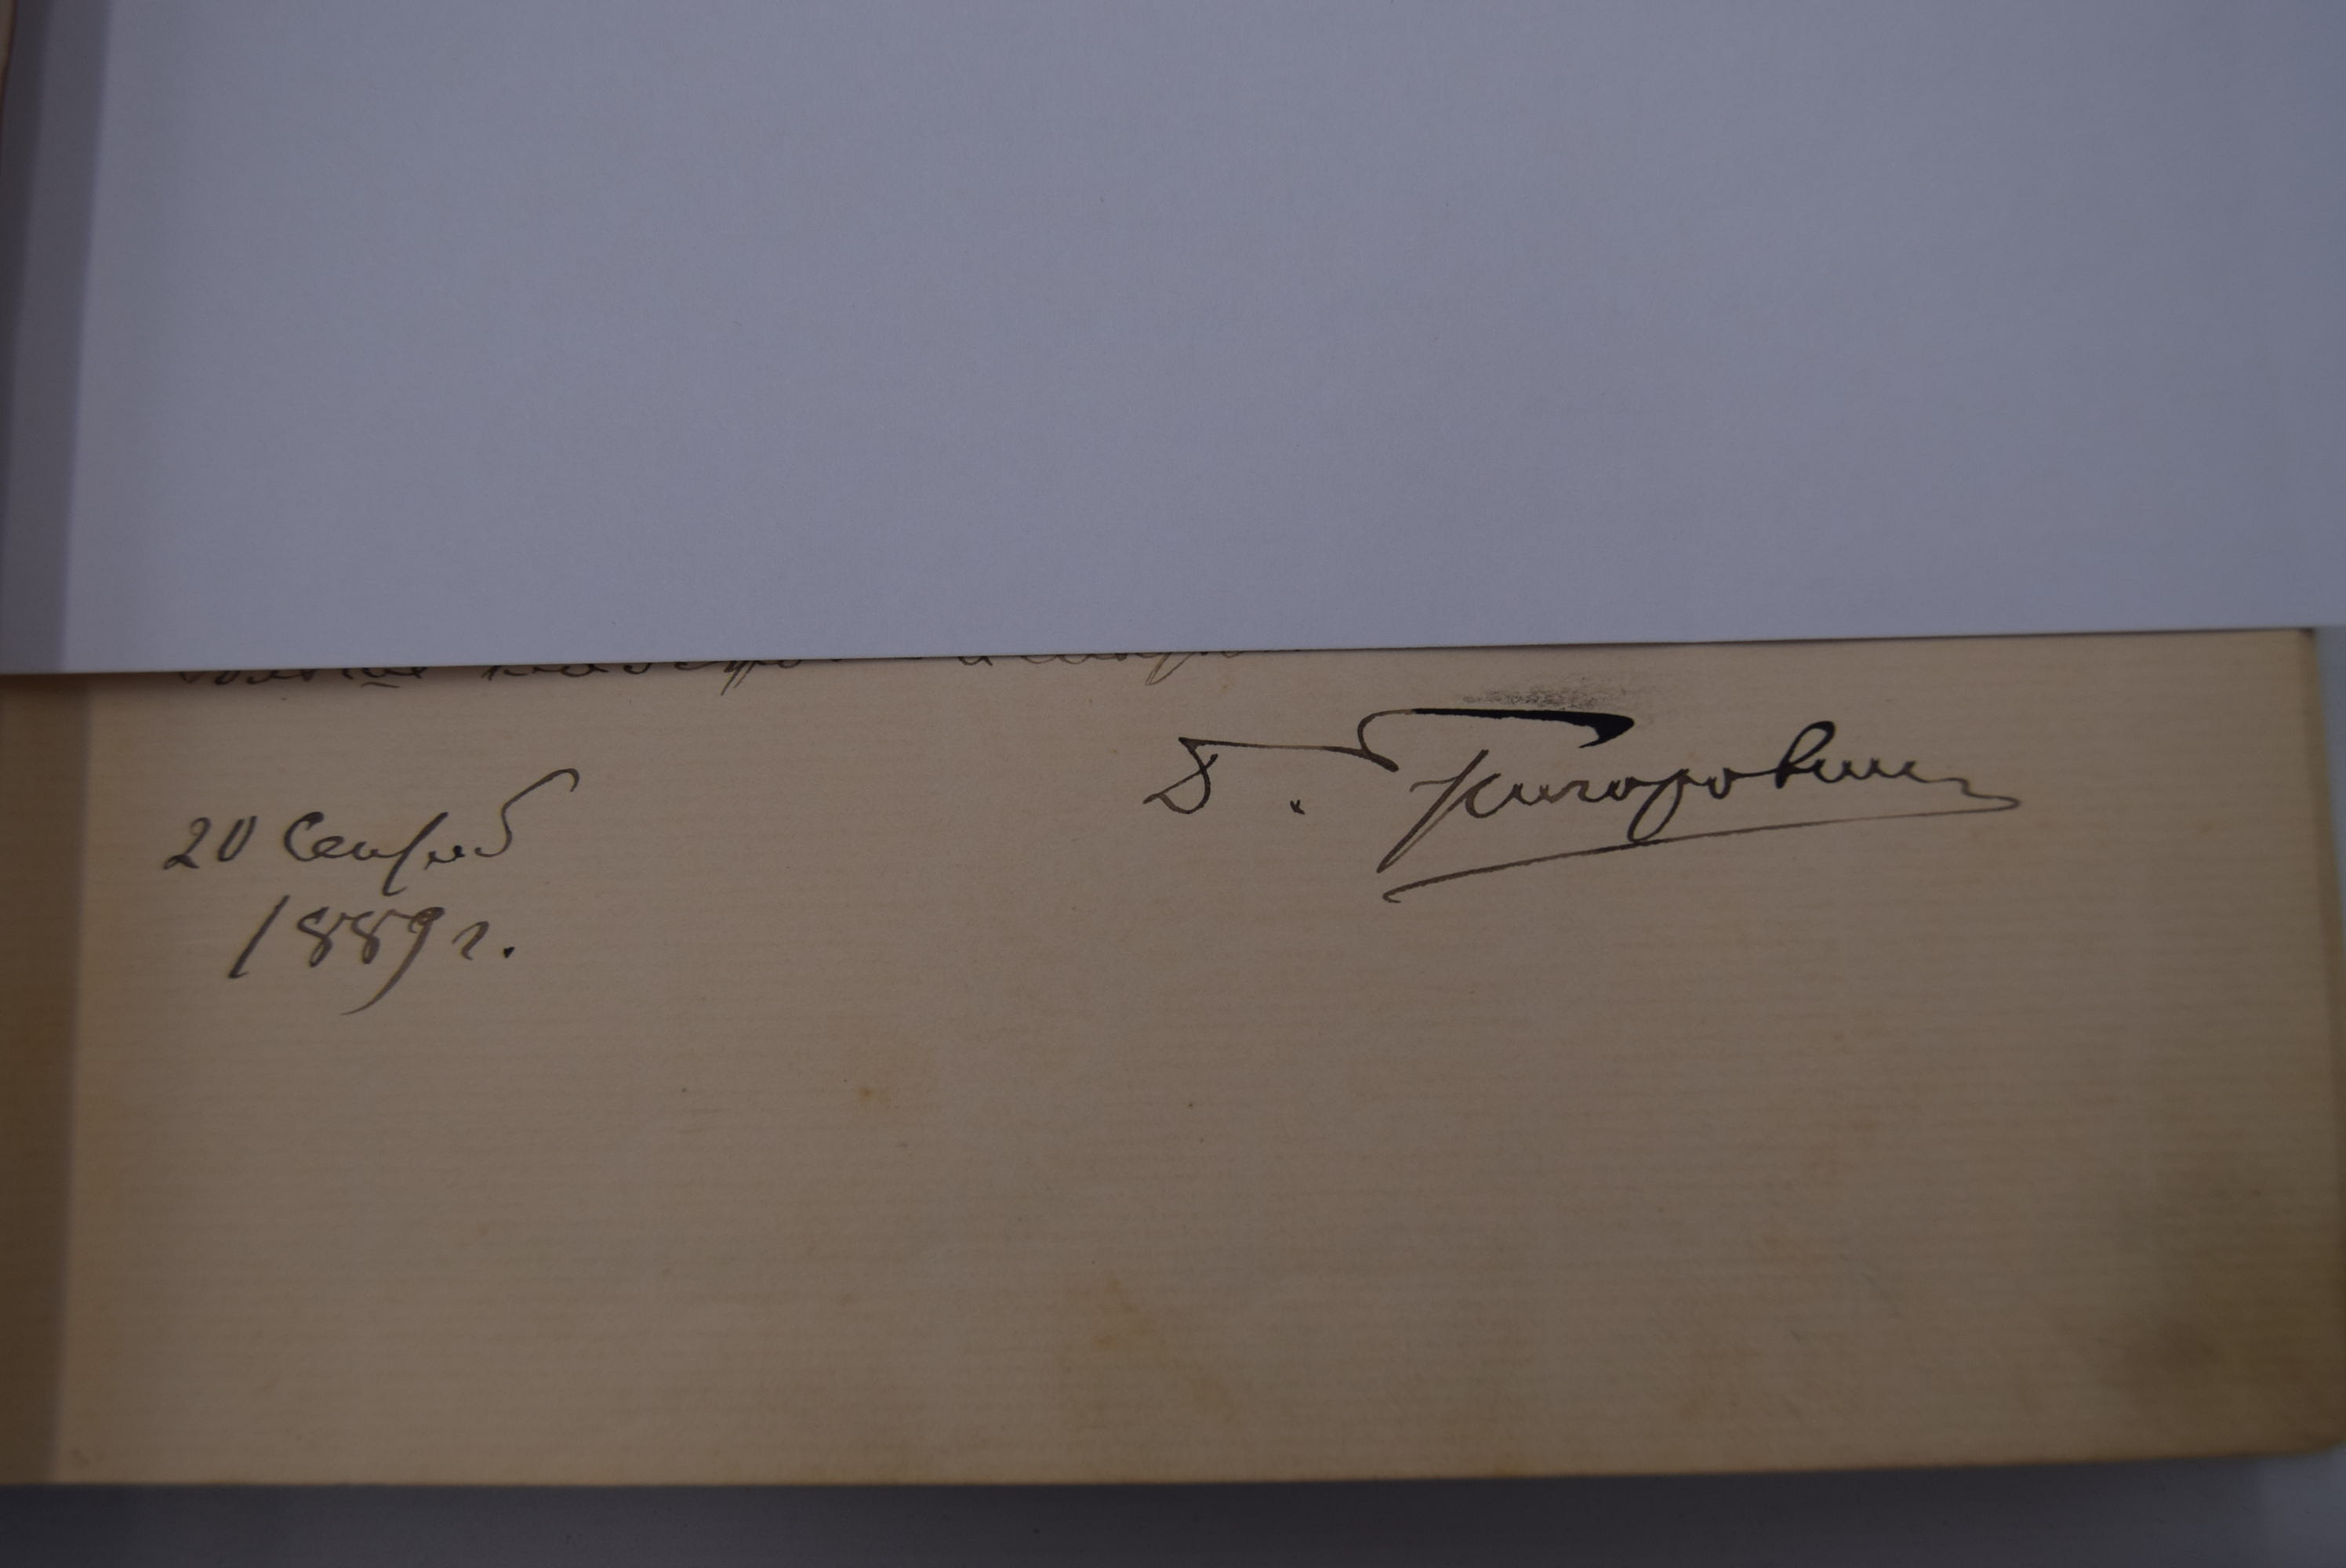 Д. Григорович
20 Сентяб
1889 г.